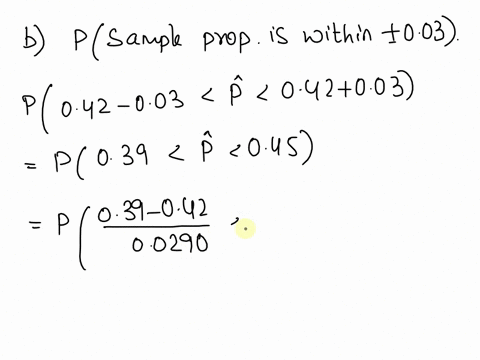 b) P(Sample prop. is within ±0.03).
P(0.42-0.03 < P̂ < 0.42+0.03)
= P(0.39 < P̂ < 0.45)
= P( 0.39-0.42 / 0.0290 ,